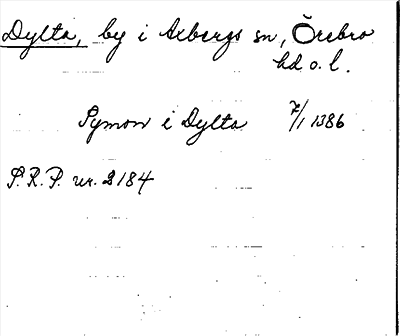 Dylta, by i Axbergs sn, Örebro
hd o. l.
Symon i Dylta 7/1 1386
S.R.P. nr. 2184